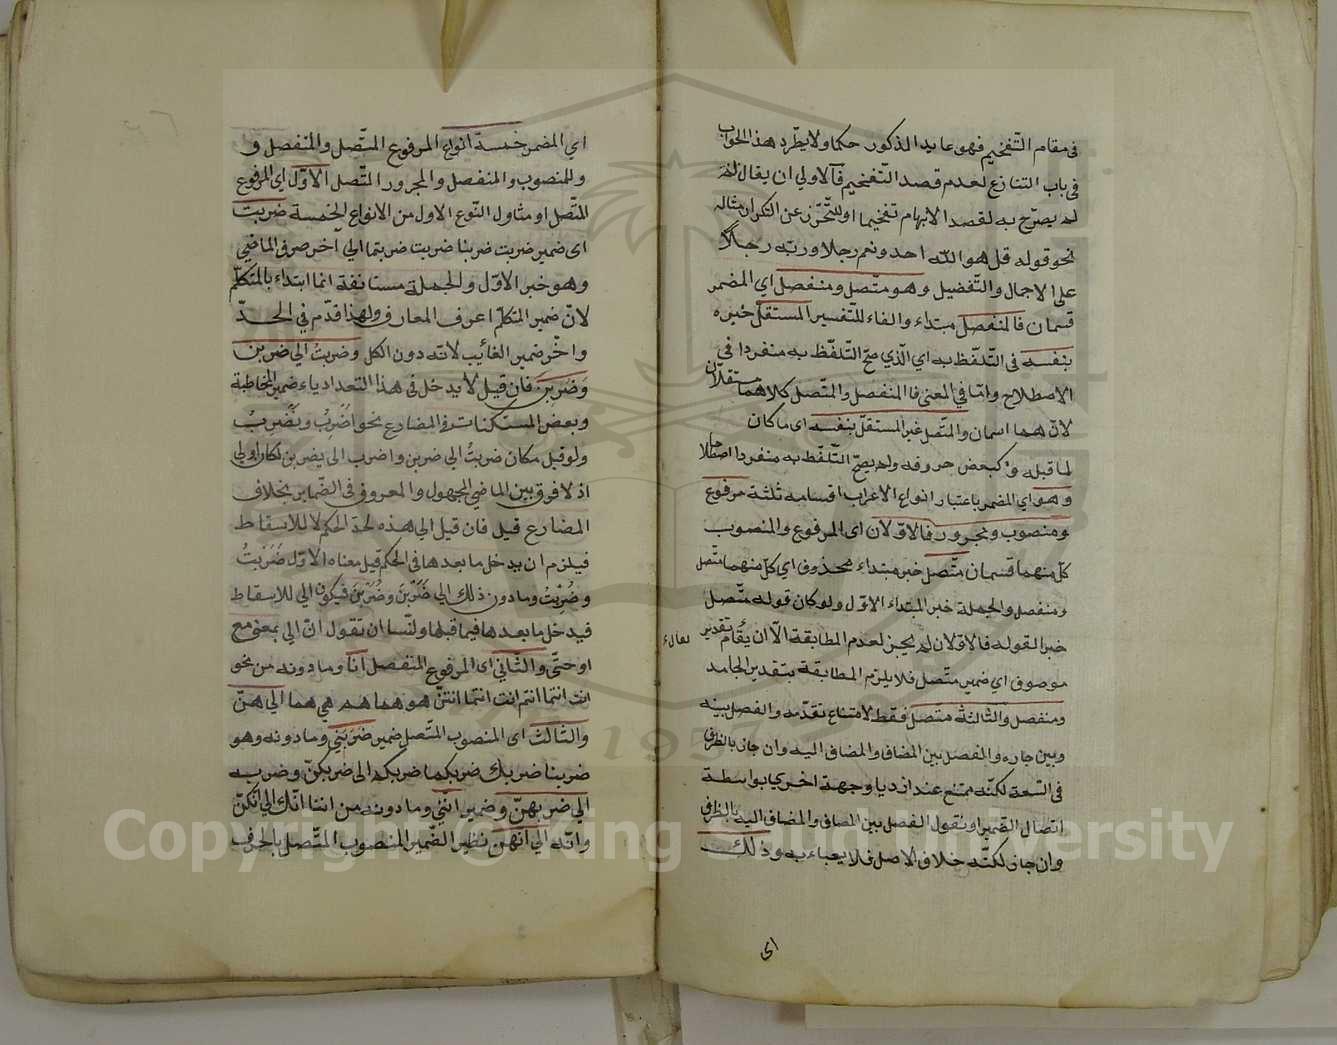 فى مقام التّفخيم فهو عايد الذكور حكما ولا يطّرد هذا الجواب
فى باب التنازع لعدم قصد التّفخيم فالاولى ان يقال انه
لم يصرّح به لقصد الابهام تفخيما او للتّحرّز عن التكرار مثاله
نحو قوله قل هو الله احد ونعم رجلا وربّه رجلا
على الاجمال والتّفصيل وهو متّصل ومنفصل اى المضمر
قسمان فالمنفصل مبتداء والفاء للتّفسير المستقلّ خبره
بنفسه فى التّلفّظ به اى الّذي صحّ التّلفّظ به منفردا فى
الاصطلاح وامّا في المعنى فالمنفصل والمتّصل كلاهما مستقلّان
لانّهما اسمان والمتّصل غير المستقلّ بنفسه اى ما كان
لما قبله كبعض حروفه ولم يصحّ التّلفّظ به منفردا اصطلاحا
وهو اى المضمر باعتبار انواع الاعراب اقسامه ثلثة مرفوع
ومنصوب ومجرور فالاوّلان اى المرفوع والمنصوب
كلّ منهما قسمان متّصل خبر مبتداء محذوف اى كلّ منهما متّصل
ومنفصل والجملة خبر المبتداء الاوّل ولو كان قوله متّصل
خبرا لقوله فالاوّلان لم يجز لعدم المطابقة الّا ان يقام تقدير
لعالى
موصوف اى ضمير متّصل فلا يلزم المطابقة بتقدير الجامد
ومنفصل والثالثة متّصل فقط لامتناع تقدّمه والفصل بينه
وبين جاره والفصل بين المضاف والمضاف اليه وان جاز بالظرف
فى السّعة لكنّه ممتنع عند ازدياد جهة اخرى بواسطة
اتصال الضّمير او نقول الفصل بين المضاف والمضاف اليه بالظرف
وان جاز لكنّه خلاف الاصل فلا يعباء به وذلك
اى
اي المضمر خمسة انواع المرفوع المتّصل والمنفصل و
والمنصوب والمنفصل والمجرور المتّصل الاوّل اى المرفوع
المتّصل او مثاول النّوع الاول من الانواع الخمسة ضربت
اى ضمير ضربت ضربنا ضربت ضربتما الى آخر صرف الماضي
وهو خبر الاوّل والجملة مستانفة انما ابتداء بالمتكلّم
لانّ ضمير المتكلّم اعرف المعارف ولهذا قدّم في الحدّ
واخّر ضمير الغائب لانّه دون الكل وضربتُ الى ضربن
وضربن فان قيل لا يدخل فى هذا التعداد ياء ضمير المخاطبة
وبعض المستكنات فى المضارع نحو اضرب ونضرب
ولو قيل مكان ضربتُ الى ضربن واضرب الى يضربن لكان اولى
اذ لا فرق بين الماضي المجهول والمعروف فى الضّماير بخلاف
المضارع قيل فان قيل الى هذه لمدّ الحكم لا للاسقاط
فيلزم ان يدخل ما بعدها فى الحكم قيل معناه الاوّل ضَرَبتُ
وضُرِبتُ وما دون ذلك الى ضَرَبنَ وضُرِبنَ فيكون الى للاسقاط
فيدخل ما بعدها فيما قبلها ولنّا ان تقول انّ الى بمعنى مع
او حتّى والثّاني اى المرفوع المنفصل انا وما دونه من نحو
انت انتما انتم انت انتما انتنّ هو هما هم هي هما الى هنّ
والثّالث اى المنصوب المتّصل ضمير ضربني وما دونه وهو
ضربنا ضربك ضربكما ضربكم الى ضربكنّ وضربه
الى ضربهنّ وضمير انّني وما دونه من انّنا انّك الى انّكنّ
وانّه الى انّهنّ نظير الضّمير المنصوب المتّصل بالحرف
Copyright © King Saud University
1957